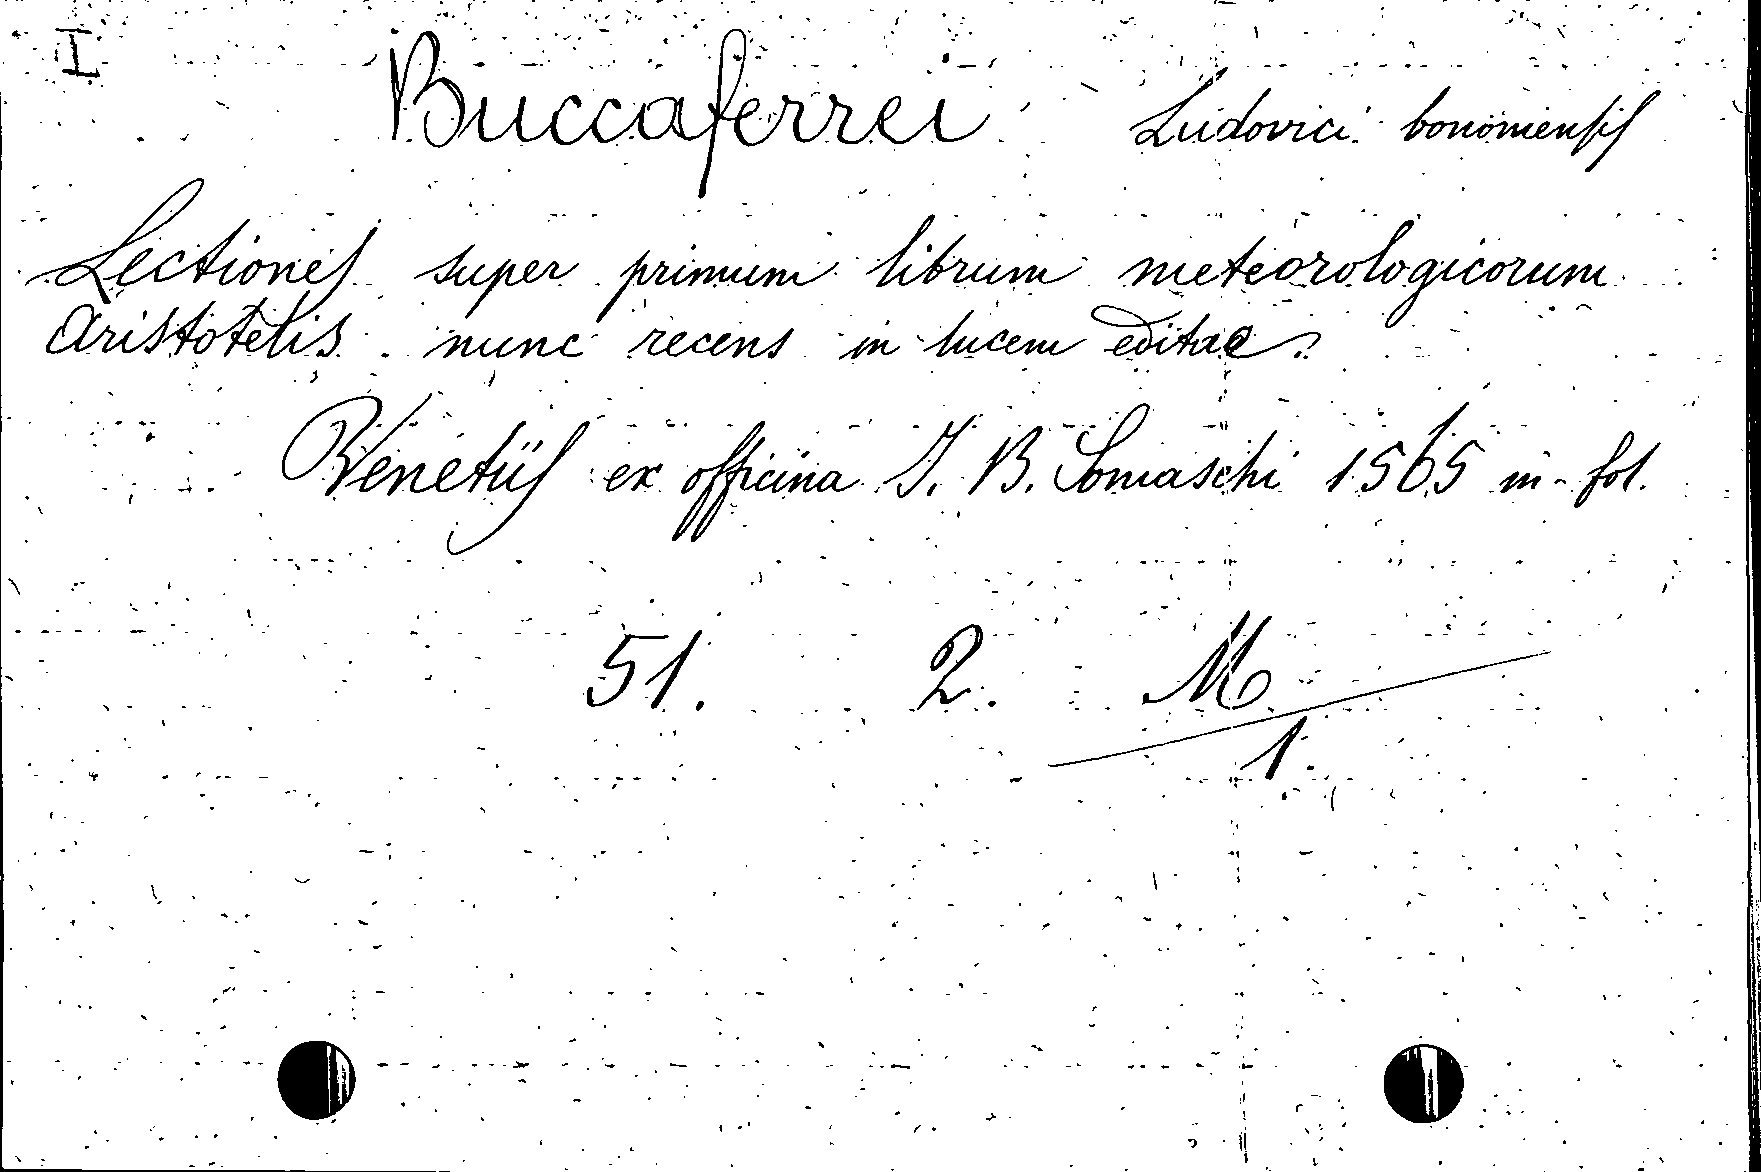 I
Buccaferrei Ludovici bononiensis
Lectiones super primum librum meteorologicorum
Aristotelis nunc recens in lucem editae.
Venetiis ex officina J. B. Somaschi 1565 in-fol.
51. 2. M
1.